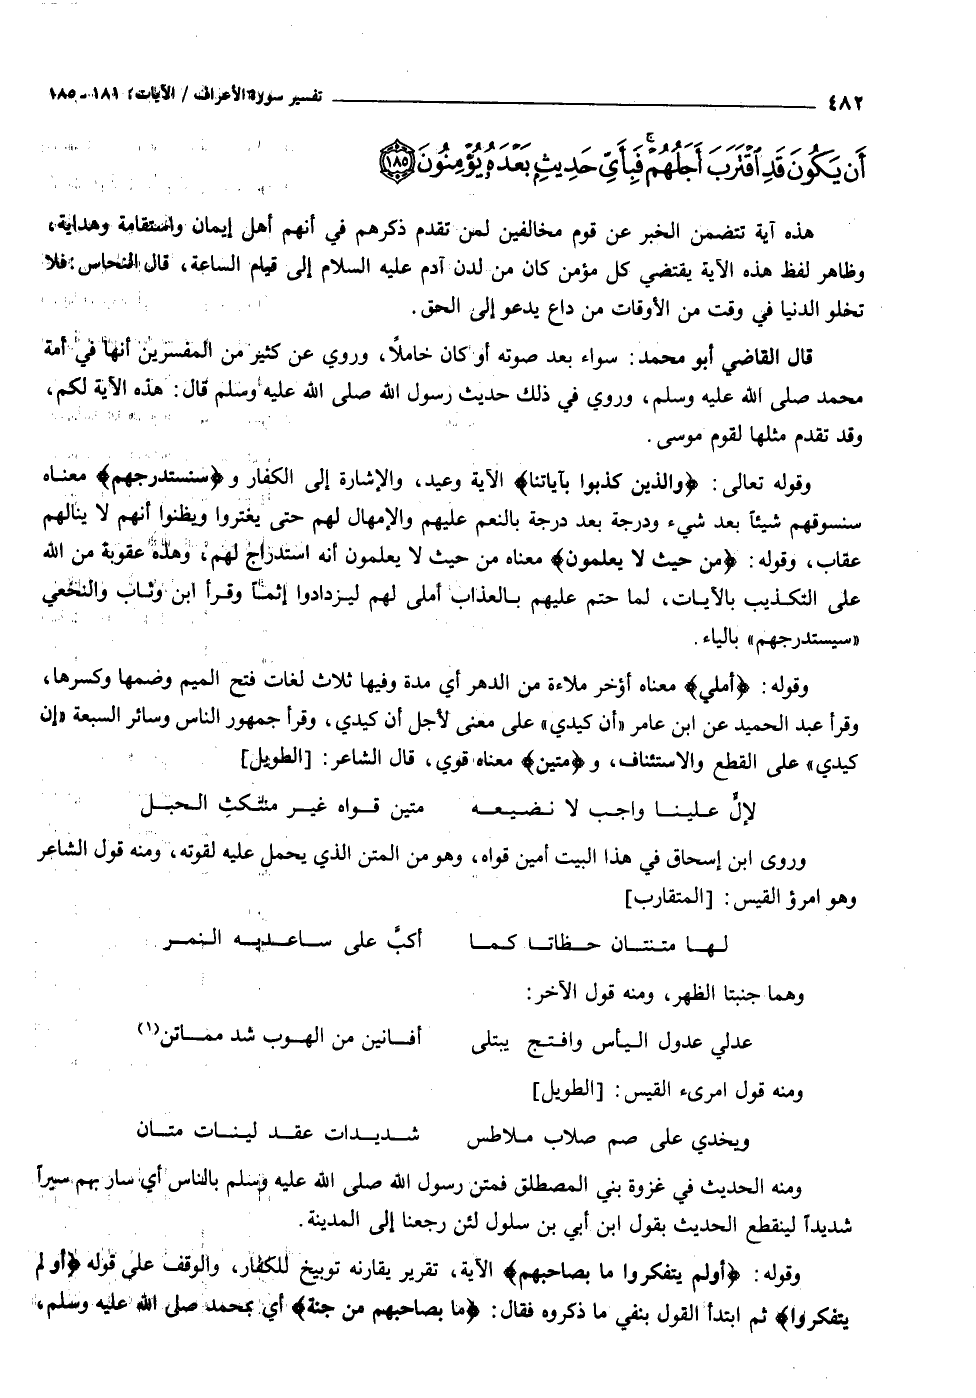 ٤٨٢ تفسير سورة الأعراف / الآيات: ١٨١ - ١٨٥
أَن يَكُونَ قَدِ اقْتَرَبَ أَجَلُهُمْ ۖ فَبِأَيِّ حَدِيثٍ بَعْدَهُ يُؤْمِنُونَ ١٨٥
هذه آية تتضمن الخبر عن قوم مخالفين لمن تقدم ذكرهم في أنهم أهل إيمان واستقامة وهداية،
وظاهر لفظ هذه الآية يقتضي كل مؤمن كان من لدن آدم عليه السلام إلى قيام الساعة، قال النحاس: فلا
تخلو الدنيا في وقت من الأوقات من داع يدعو إلى الحق.
قال القاضي أبو محمد: سواء بعد صوته أو كان خاملاً، وروي عن كثير من المفسرين أنها في أمة
محمد صلى الله عليه وسلم، وروي في ذلك حديث رسول الله صلى الله عليه وسلم قال: هذه الآية لكم،
وقد تقدم مثلها لقوم موسى.
وقوله تعالى: ﴿والذين كذبوا بآياتنا﴾ الآية وعيد، والإشارة إلى الكفار و﴿سنستدرجهم﴾ معناه
سنسوقهم شيئاً بعد شيء ودرجة بعد درجة بالنعم عليهم والإمهال لهم حتى يغتروا ويظنوا أنهم لا ينالهم
عقاب، وقوله: ﴿من حيث لا يعلمون﴾ معناه من حيث لا يعلمون أنه استدراج لهم، وهذه عقوبة من الله
على التكذيب بالآيات، لما حتم عليهم بالعذاب أملى لهم ليزدادوا إثماً وقرأ ابن وثاب والنخعي
«سيستدرجهم» بالياء.
وقوله: ﴿أملي﴾ معناه أؤخر ملاءة من الدهر أي مدة وفيها ثلاث لغات فتح الميم وضمها وكسرها،
وقرأ عبد الحميد عن ابن عامر «أن كيدي» على معنى لأجل أن كيدي، وقرأ جمهور الناس وسائر السبعة «إن
كيدي» على القطع والاستئناف، و﴿متين﴾ معناه قوي، قال الشاعر: [الطويل]
لإلٍّ علينا واجب لا نضيعه متين قواه غير منتكثِ الحبل
وروى ابن إسحاق في هذا البيت أمين قواه، وهو من المتن الذي يحمل عليه لقوته، ومنه قول الشاعر
وهو امرؤ القيس: [المتقارب]
لها متنتان حظاتا كما أكبَّ على ساعديه النمر
وهما جنبتا الظهر، ومنه قول الآخر:
عدلي عدول اليأس وافتج يبتلى أفانين من الهوب شد مماتن(١)
ومنه قول امرىء القيس: [الطويل]
ويخدي على صم صلاب ملاطس شديدات عقد لينات متان
ومنه الحديث في غزوة بني المصطلق فمتن رسول الله صلى الله عليه وسلم بالناس أي سار بهم سيراً
شديداً لينقطع الحديث بقول ابن أبي بن سلول لئن رجعنا إلى المدينة.
وقوله: ﴿أولم يتفكروا ما بصاحبهم﴾ الآية، تقرير يقارنه توبيخ للكفار، والوقف على قوله ﴿أو لم
يتفكروا﴾ ثم ابتدأ القول بنفي ما ذكروه فقال: ﴿ما بصاحبهم من جنة﴾ أي بمحمد صلى الله عليه وسلم،